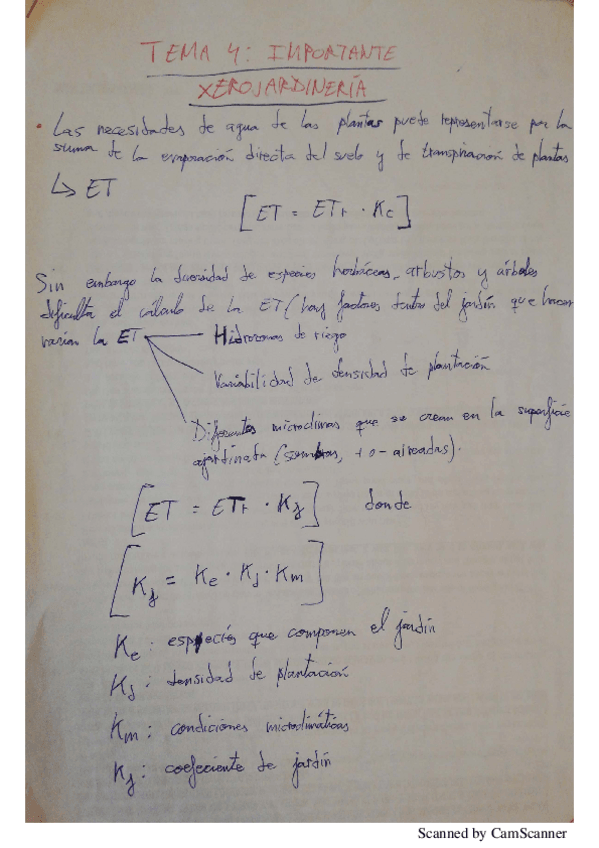 TEMA 4: IMPORTANTE
XEROJARDINERÍA
• Las necesidades de agua de las plantas puede representarse por la
suma de la evaporación directa del suelo y de transpiración de plantas
↳ ET
[ET = ETr · Kc]
Sin embargo la diversidad de especies herbáceas, arbustos y árboles
dificulta el cálculo de la ET (hay factores dentro del jardín que hacen
varían la ET
Hidrozonas de riego
Variabilidad de densidad de plantación
Diferentes microclimas que se crean en la superficie
ajardinada (sombras, + o - aireadas).
[ET = ETr · Kj] donde
[Kj = Ke · Kd · Km]
Ke: especies que componen el jardín
Kd: densidad de plantación
Km: condiciones microclimáticas
Kj: coeficiente de jardín
Scanned by CamScanner